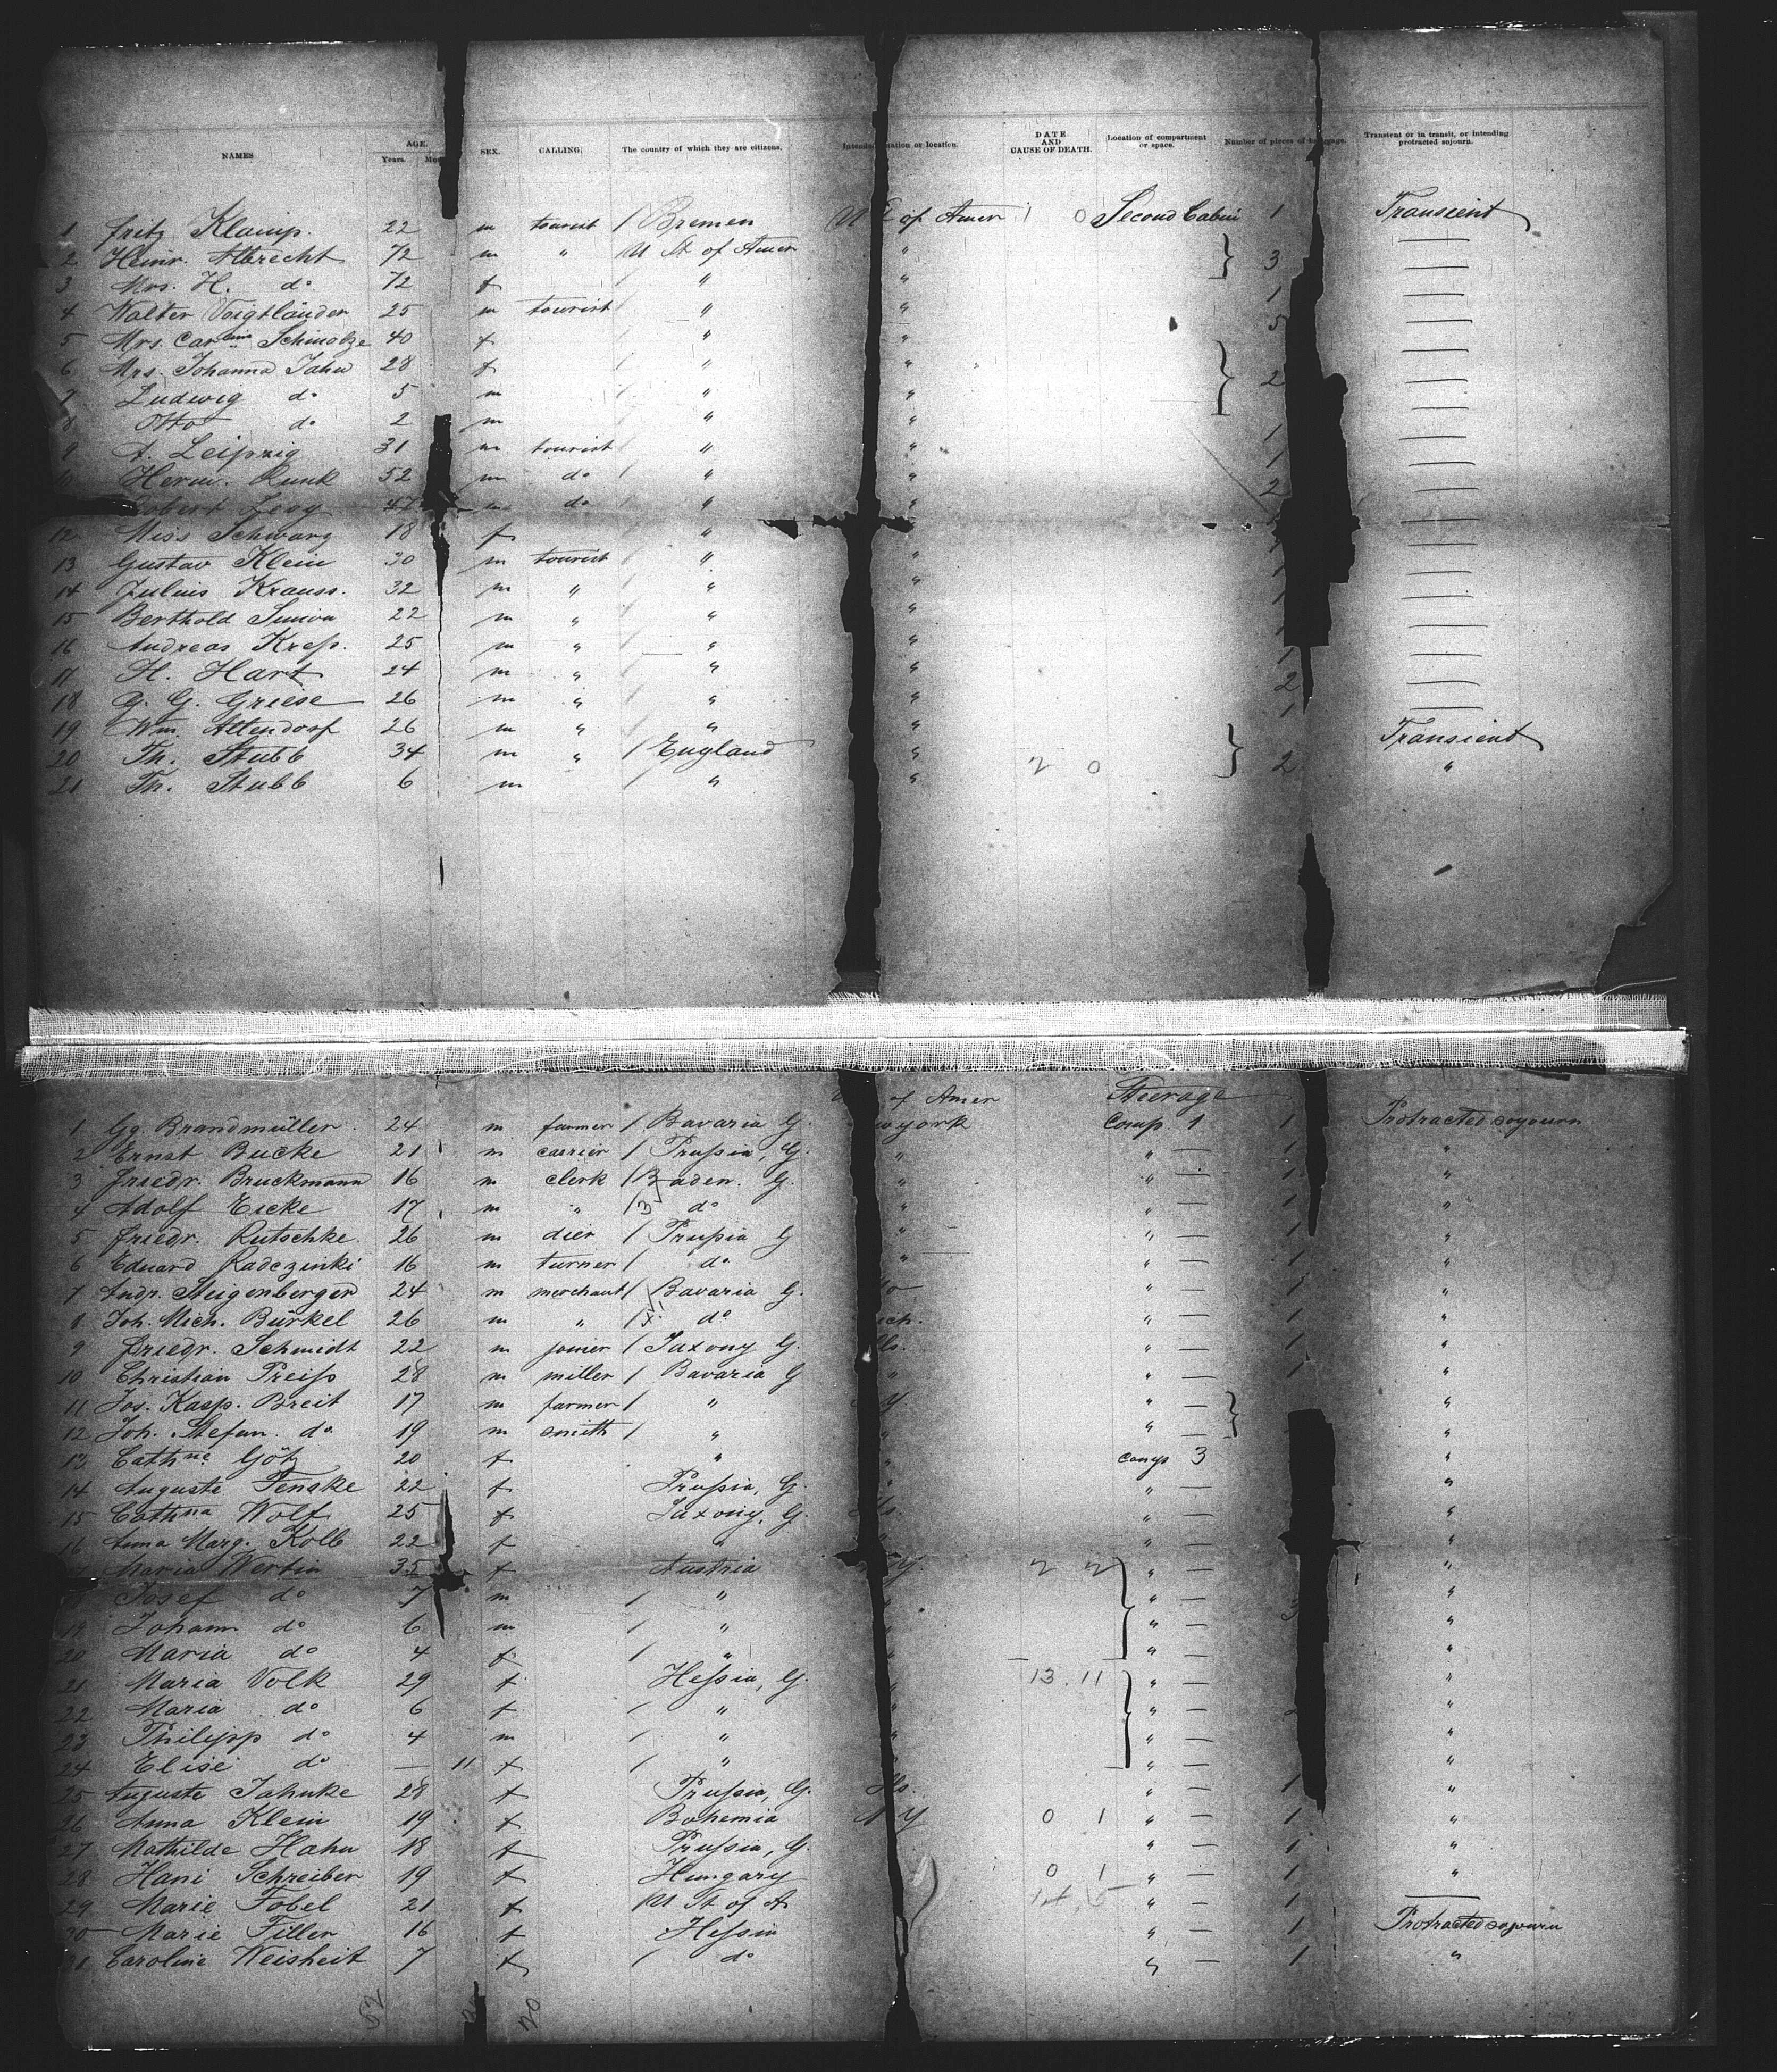 NAMES AGE. Years. SEX. CALLING. The country of which they are citizens. location. DATE AND CAUSE OF DEATH. Location of compartment or space. Number of pieces of Transient or in transit, or intending protracted sojourn.
1 Fritz Klamp. 22 m tourist / Bremen of Amer 1 0 Second Cabin 1 Transient
2 Heinr. Albrecht 72 m " U St of Amer " } 3 —
3 Mrs. H. do 72 f / " " —
4 Walter Voigtländer 25 m tourist / " " 1 —
5 Mrs. Schmolze 40 f / " " 5 —
6 Mrs. Johanna Jahn 28 f / " " } 2 —
7 Ludwig do 5 m / " " —
8 Otto do 2 m / " " —
9 A. Leipzig 31 m tourist / " " 1 —
10 Herm. 52 m do / " " 1 —
Levy 47 m do / " " 2 —
12 Miss Schwarz 18 f / " —
13 Gustav Klein 30 m tourist / " " —
14 Julius Krauss. 32 m " / " " 1 —
15 Berthold Simon 22 m " / " " 1 —
16 Andreas Kreß. 25 m " / " " —
17 H. Hart 24 m " / " " 1 —
18 G. Griese 26 m " / " " 2 —
19 Wm. Attendorf 26 m " / " " 1 —
20 Th. Stubb 34 m " / England " 2 0 } 2 Transient
21 Th. Stubb 6 m / " " "
of Amer Steerage
1 Gg. Brandmüller. 24 m farmer / Bavaria G. york Comp. 1 1 Protracted sojourn
2 Ernst Bucke 21 m carrier / Prußia, G. " " — 1 "
3 Friedr. Bruckmann 16 m clerk / Baden. G. " " — 1 "
4 Adolf Eicke 17 m " / do " " — 1 "
5 Friedr. Rutschke. 26 m dier / Prußia G " " — 1 "
6 Eduard Radczinki 16 m turner / do " " — 1 "
7 Andr. Steigenberger 24 m merchant / Bavaria G. o " — 1 "
8 Joh. Mich. Bürkel 26 m " / do ich. " — 1 "
9 Friedr. Schmidt 22 m joiner / Saxony G. lls. " — 1 "
10 Christian Preiß 28 m miller / Bavaria G " " — 1 "
11 Jos. Kasp. Breit 17 m farmer / " y " — } "
12 Joh. Stefan. do. 19 m smith / " " " — "
13 Cathne Götz 20 f " " Comp 3 "
14 Auguste Fenske 22 f Prußia, G. " " — "
15 Cathna Wolf 25 f Saxony, G. lls. " — "
16 Anna Marg. Kolb 22 f " " — "
Maria Wertin 35 f Austria y. 2 2 } " — "
Josef do 7 m / " " " — 3 "
19 Johann do 6 m / " " " — "
20 Maria do 4 f / " " " — "
21 Maria Volk 29 f Heßia, G. " 13. 11 } " — "
22 Maria do 6 f / " " " — "
23 Philipp do 4 m / " " " — "
24 Elise do — 11 f / " " — "
25 Auguste Jahnke 28 f Prußia, G. lls. " — 1 "
26 Anna Klein 19 f Bohemia N Y 0 1 " — 1 "
27 Mathilde Hahn 18 f Prußia, G. " — 1 "
28 Hani Schreiber 19 f Hungary 0 1 " — 1 "
29 Marie Fobel 21 f U St of A 14 5 " — 1 —
30 Marie Filler 16 f Heßia " — 1 Protracted sojourn
31 Caroline Weisheit 7 f / do " — 1 "
20